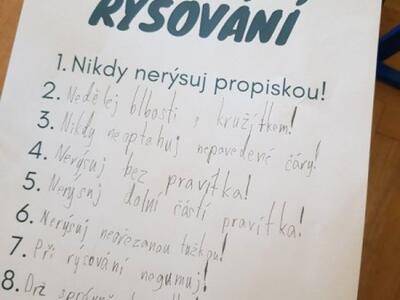 RÝSOVÁNÍ
1. Nikdy nerýsuj propiskou!
2. Nedělej blbosti s kružítkem!
3. Nikdy neoptahuj nepovedené čáry!
4. Nerýsuj bez pravítka!
5. Nerýsuj dolní částí pravítka!
6. Nerýsuj neořezanou tužkou!
7. Při rýsování negumuj!
8. Drž správně